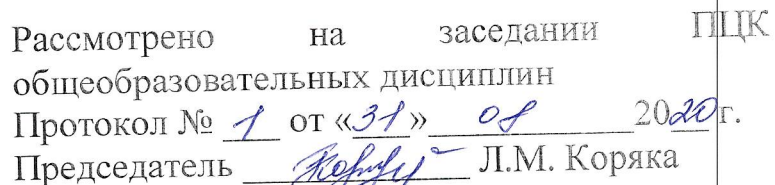 Рассмотрено на заседании ПЦК
общеобразовательных дисциплин
Протокол № 1 от «31» 08 2020 г.
Председатель Л.М. Коряка